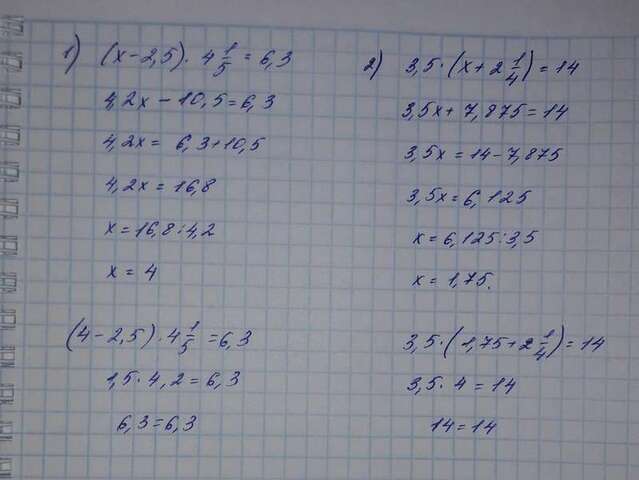 1) (x-2,5) · 4 1/5 = 6,3
4,2x - 10,5 = 6,3
4,2x = 6,3+10,5
4,2x = 16,8
x = 16,8 : 4,2
x = 4
(4-2,5) · 4 1/5 = 6,3
1,5 · 4,2 = 6,3
6,3 = 6,3
2) 3,5 · (x + 2 1/4) = 14
3,5x + 7,875 = 14
3,5x = 14 - 7,875
3,5x = 6,125
x = 6,125 : 3,5
x = 1,75.
3,5 · (1,75 + 2 1/4) = 14
3,5 · 4 = 14
14 = 14